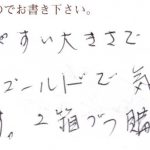 のでお書き下さい。
やすい大きさで
ゴールドで気
す。2箱づつ購